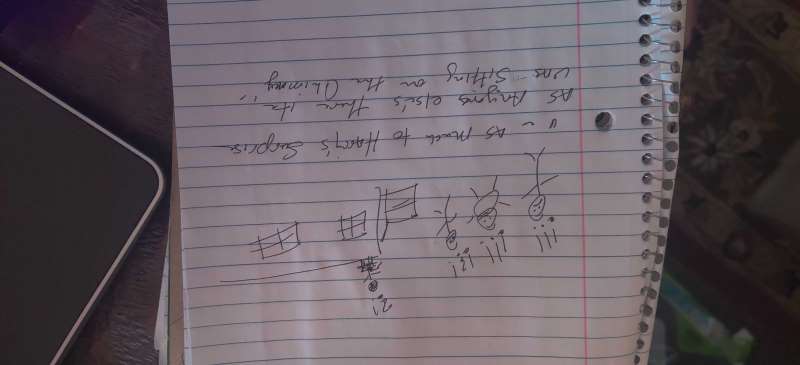 !!!!
!!!!
!?!
?!
" ~ As Much to Harry's Surprise
As Anyone else's there He
was sitting on the Chimney